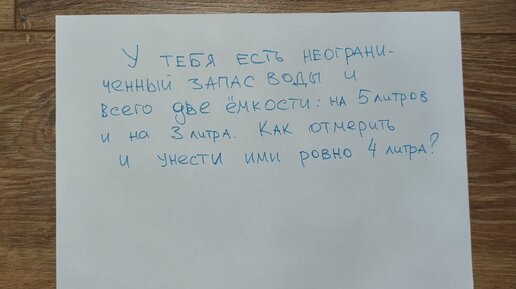 У ТЕБЯ ЕСТЬ НЕОГРАНИ-
ЧЕННЫЙ ЗАПАС ВОДЫ И
ВСЕГО ДВЕ ЁМКОСТИ: НА 5 ЛИТРОВ
И НА 3 ЛИТРА. КАК ОТМЕРИТЬ
И УНЕСТИ ИМИ РОВНО 4 ЛИТРА?